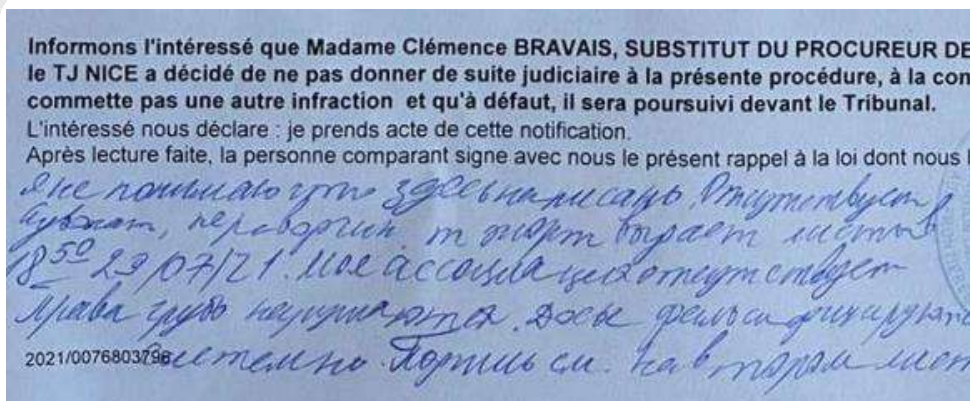 Informons l'intéressé que Madame Clémence BRAVAIS, SUBSTITUT DU PROCUREUR DE
le TJ NICE a décidé de ne pas donner de suite judiciaire à la présente procédure, à la con
commette pas une autre infraction et qu'à défaut, il sera poursuivi devant le Tribunal.
L'intéressé nous déclare : je prends acte de cette notification.
Après lecture faite, la personne comparant signe avec nous le présent rappel à la loi dont nous l
Я не понимаю что здесь написано. Отсутствует
переводчик
18 50 29/07/21. Моя ассоциация отсутствует
Права грубо нарушаются. Досье
2021/0076803796